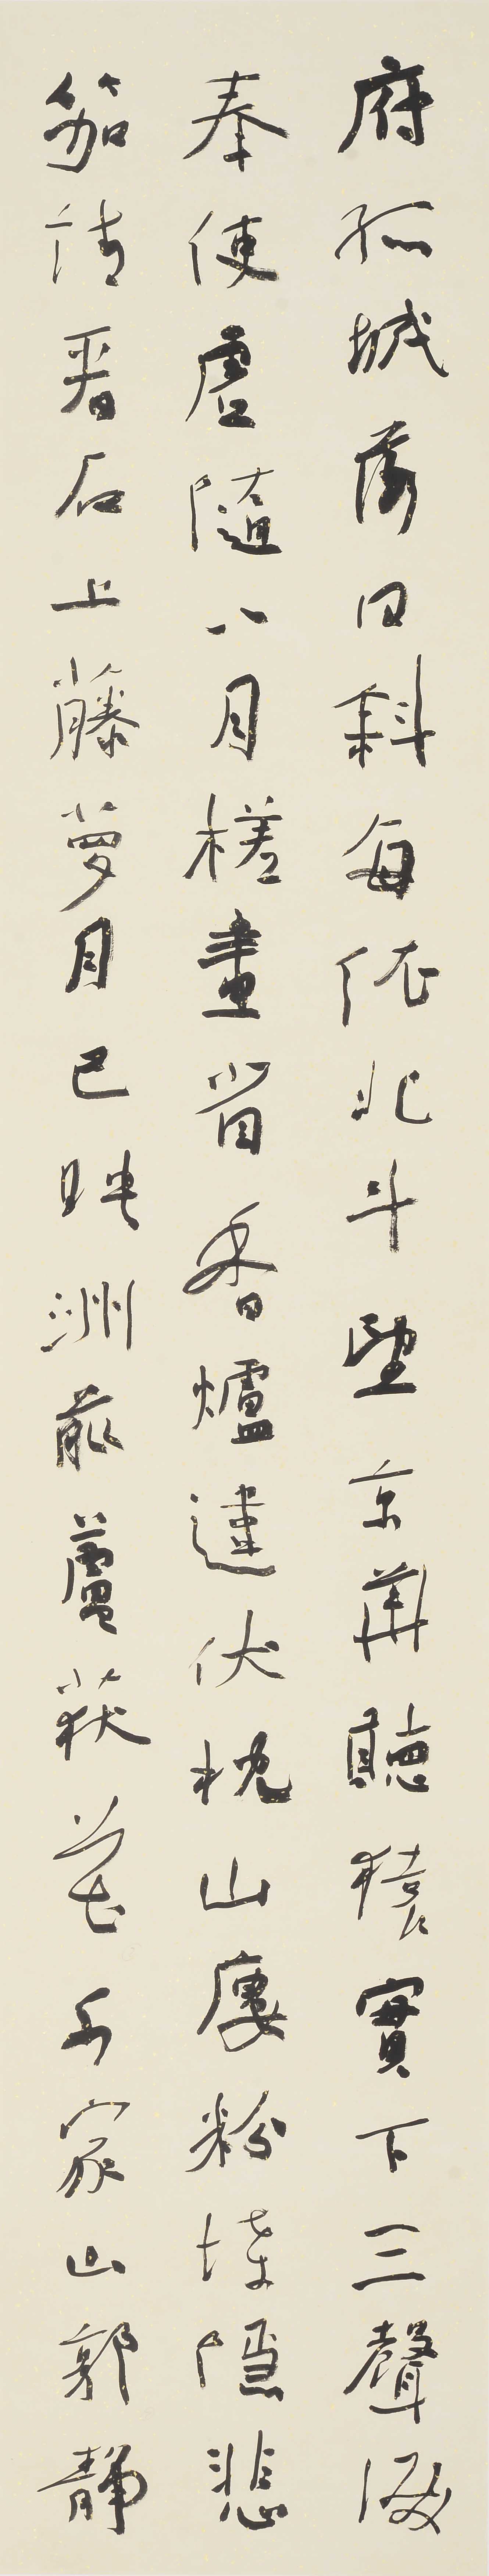 府孤城落日斜每依北斗望京華聽猿實下三聲淚
奉使虛隨八月槎畫省香爐違伏枕山廔粉堞隱悲
笳請看石上藤萝月已映洲前蘆荻花千家山郭靜